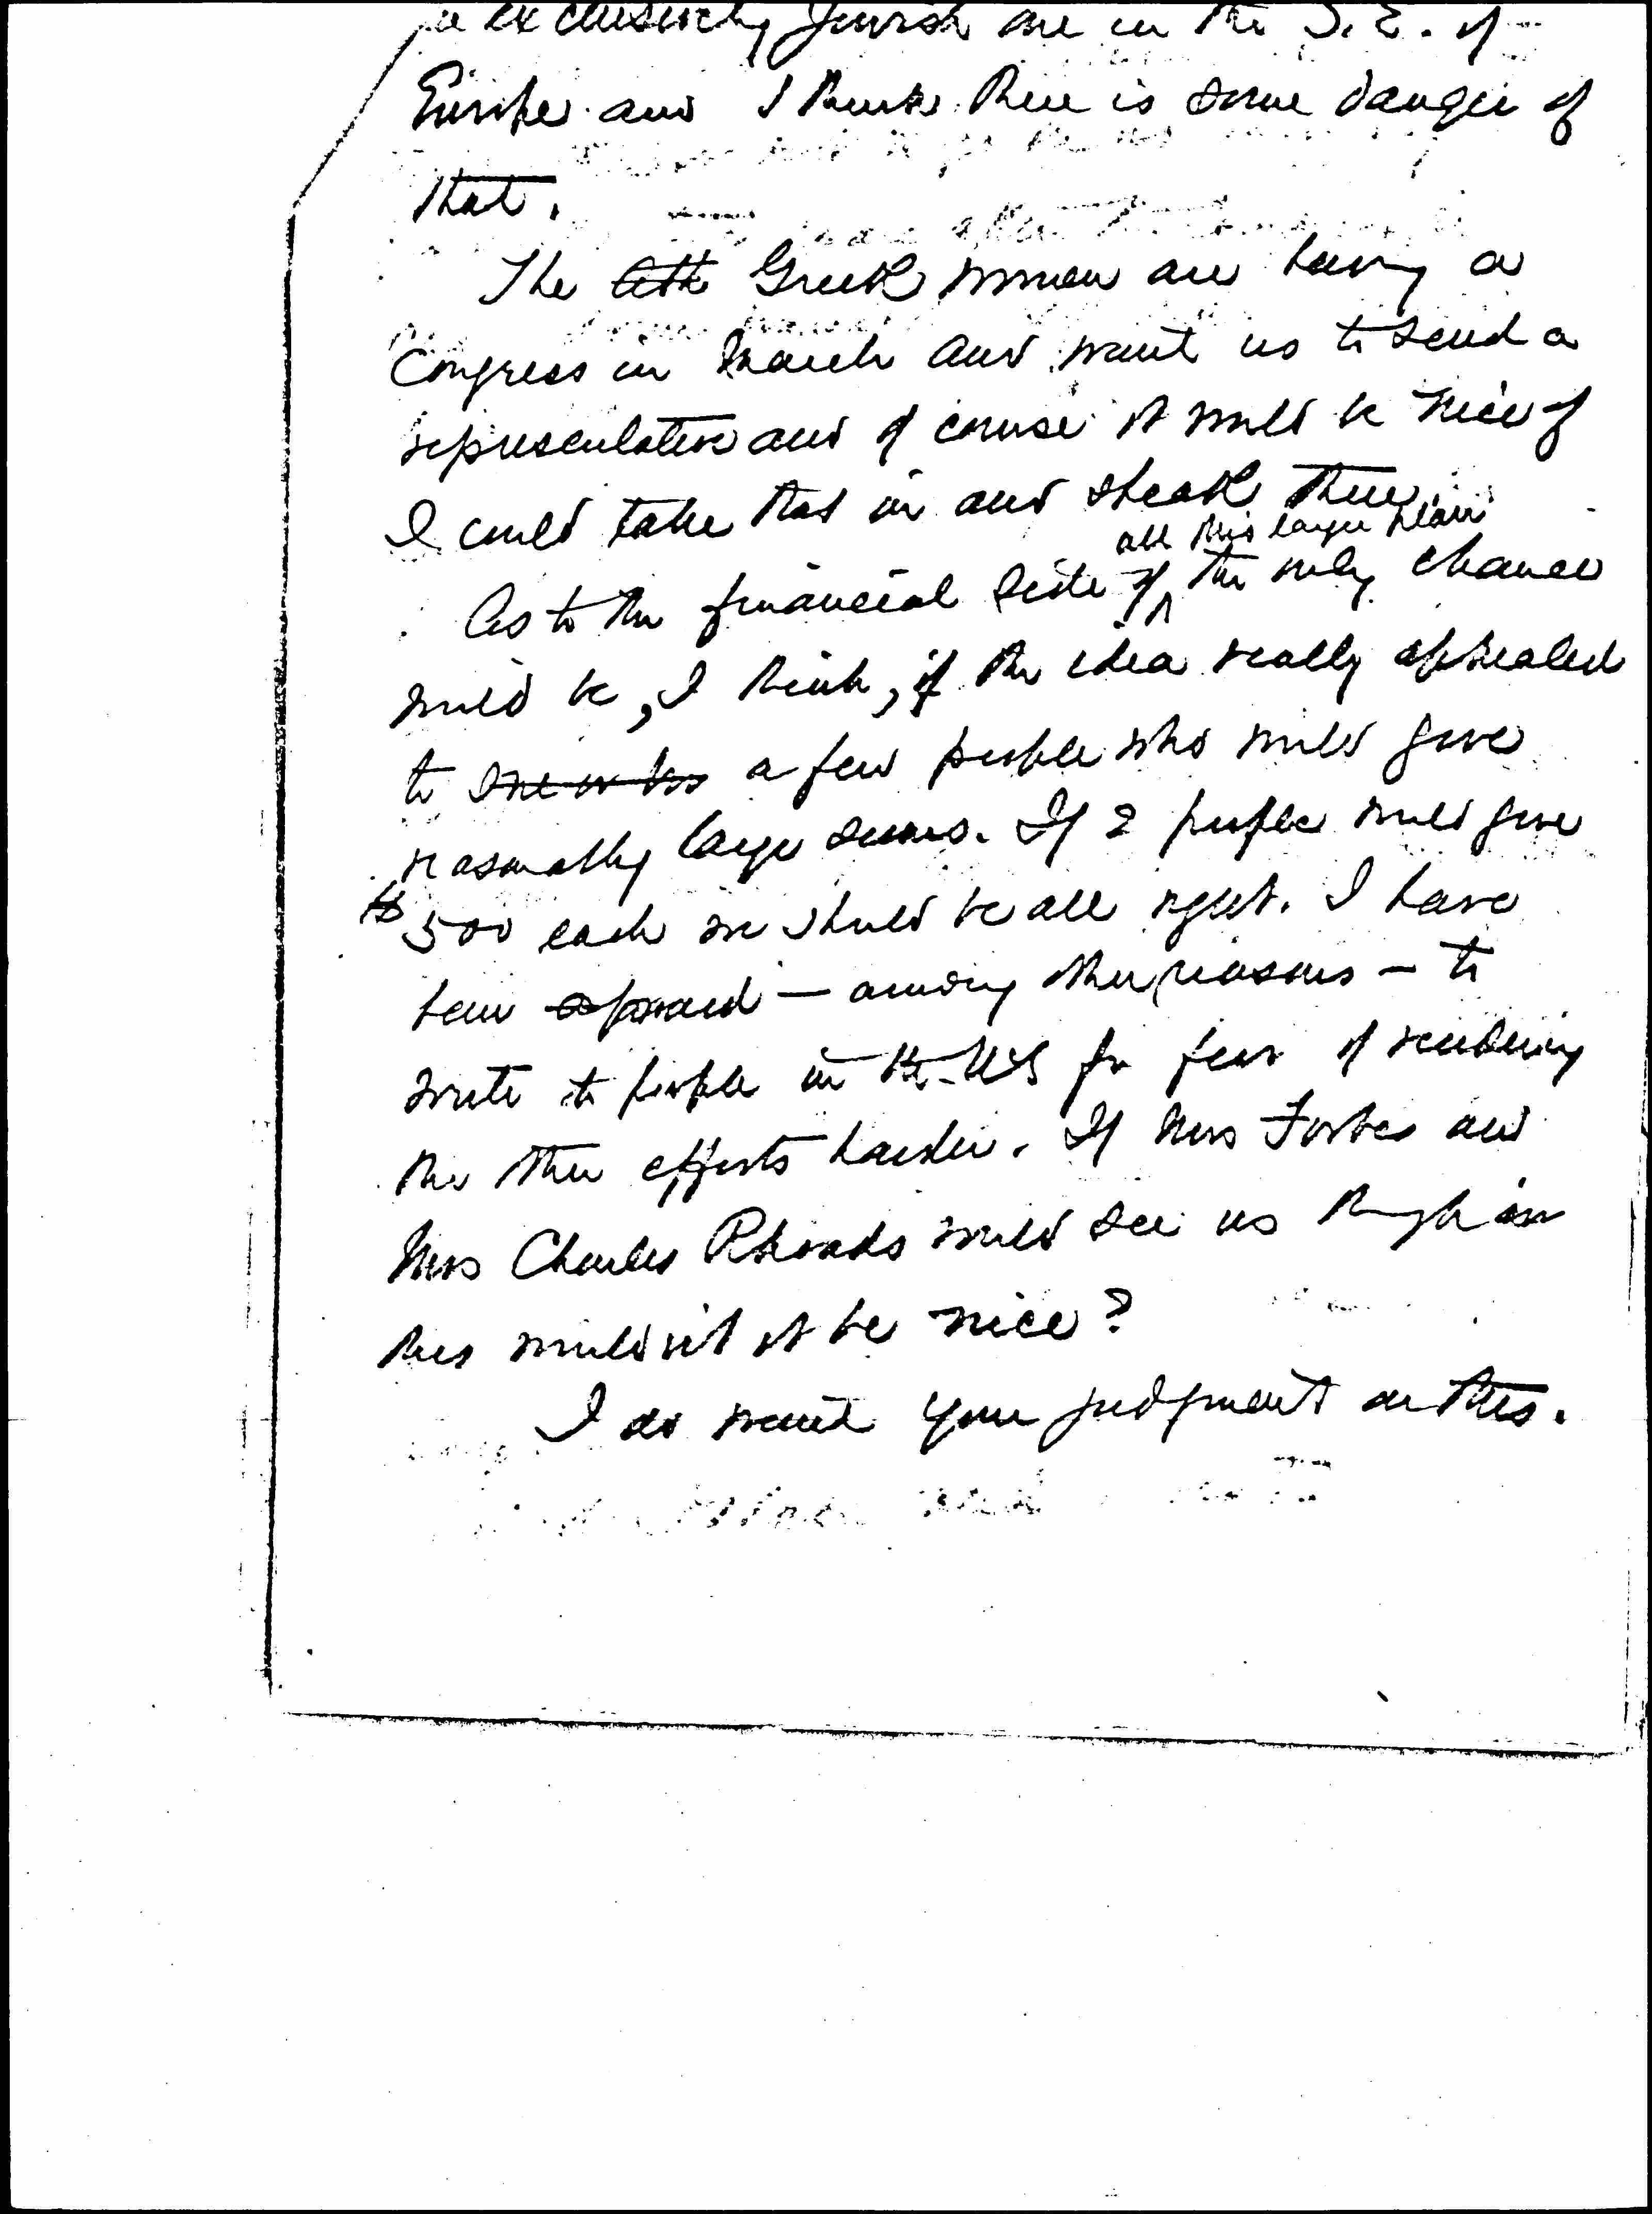 exclusively Jewish one in the S.E. of
Europe and I think there is some danger of
that.
The Greek women are having a
Congress in March and want us to send a
representative and of course it would be nice if
I could take that in and speak there.
all this larger plan
As to the financial side of the only chance
would be, I think, if the idea really appealed
to one or two a few people who would give
reasonably large sums. If 2 people would give
$500 each we should be all right. I have
been afraid — among other reasons — to
write to people in the US for fear of rendering
the other efforts harder. If Mrs Forbes and
Mrs Charles Rhoads would see us through on
this wouldn't it be nice?
I do want your judgment on this.